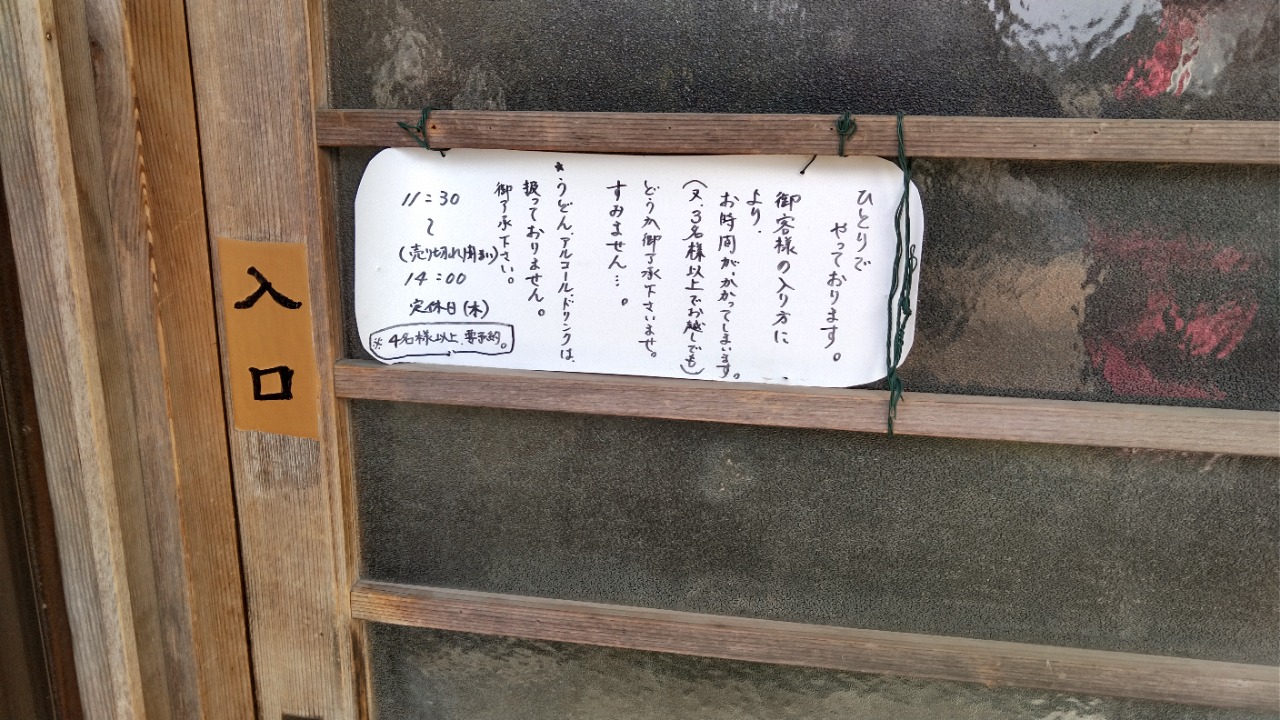 ひとりで
やっております。
御客様の入り方に
より、
お時間が、かかってしまいます。
(又、3名様以上でお越しでも)
どうか御了承下さいませ。
すみません…。
*うどん、アルコールドリンクは、
扱っておりません。
御了承下さい。
11:30
〜
(売り切れ閉まい)
14:00
定休日(木)
※4名様以上、要予約。
入口